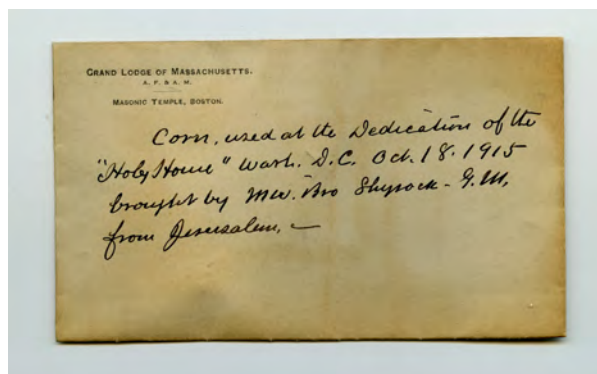 GRAND LODGE OF MASSACHUSETTS.
A. F. & A. M.
MASONIC TEMPLE, BOSTON.
Corn, used at the Dedication of the
"Holy House" Wash. D.C. Oct. 18. 1915
brought by MW. Bro Shyrock - G.M.
from Jerusalem. —